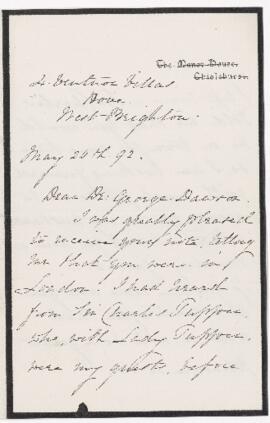 The Manor House,
Chislehurst.
4. Ventnor Villas
Hove.
West-Brighton.
May 24th 92.
Dear Dr. George Dawson.
I was greatly pleased
to receive your note, telling
me that you were in
London! I had heard
from Sir Charles Tupper,
who, with Lady Tupper,
were my guests, before